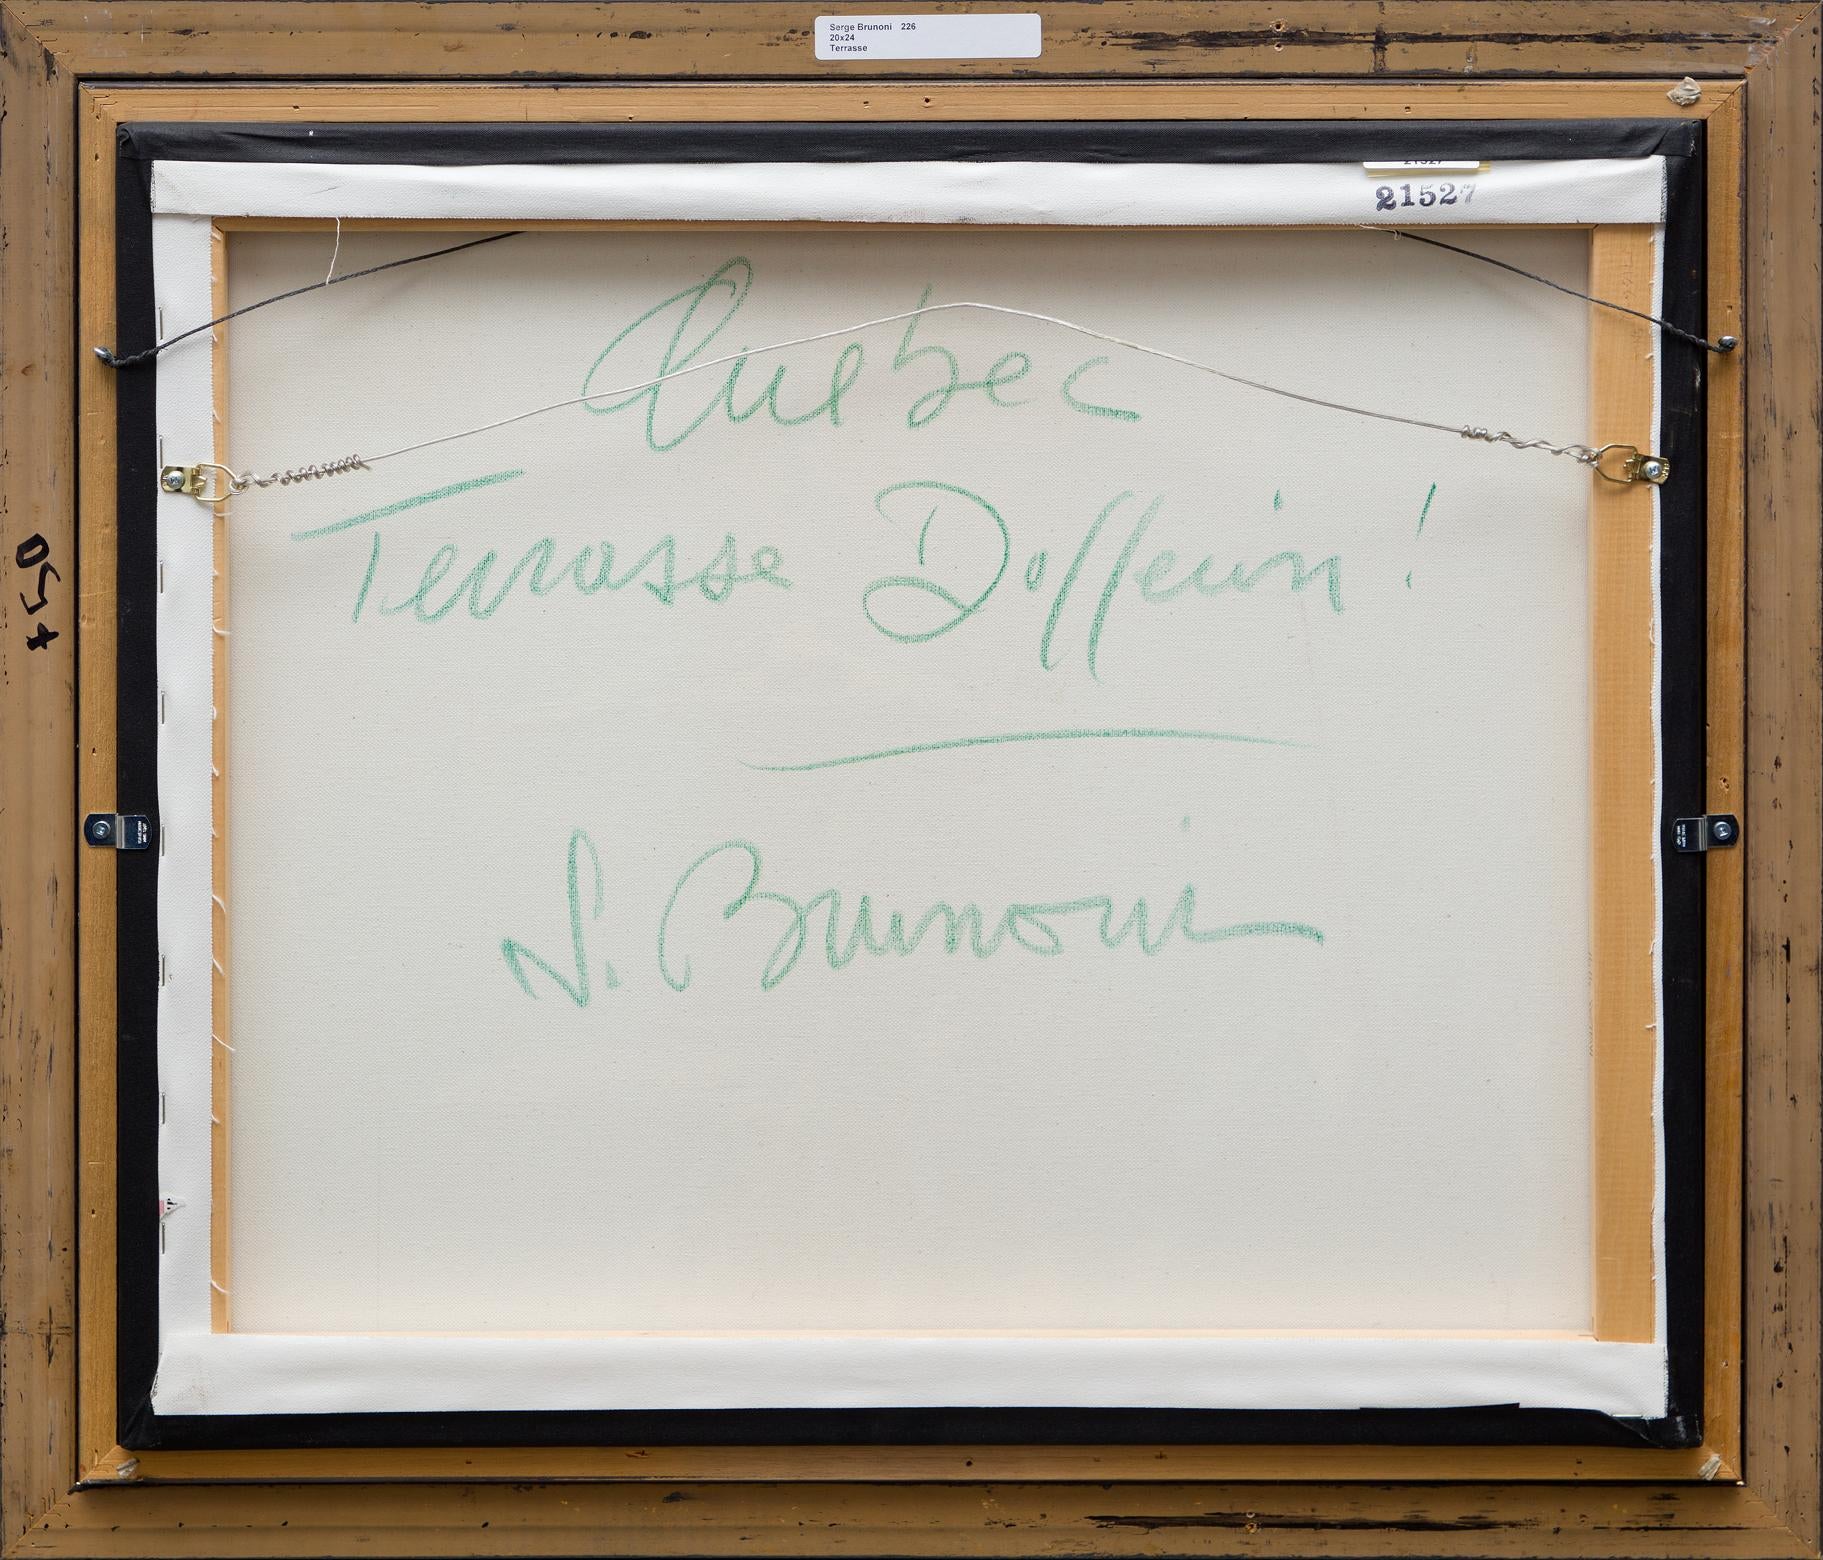 Serge Brunoni 226
20x24
Terrasse
21527
21527
Quebec
Terrasse Dufferin!
S. Brunoni